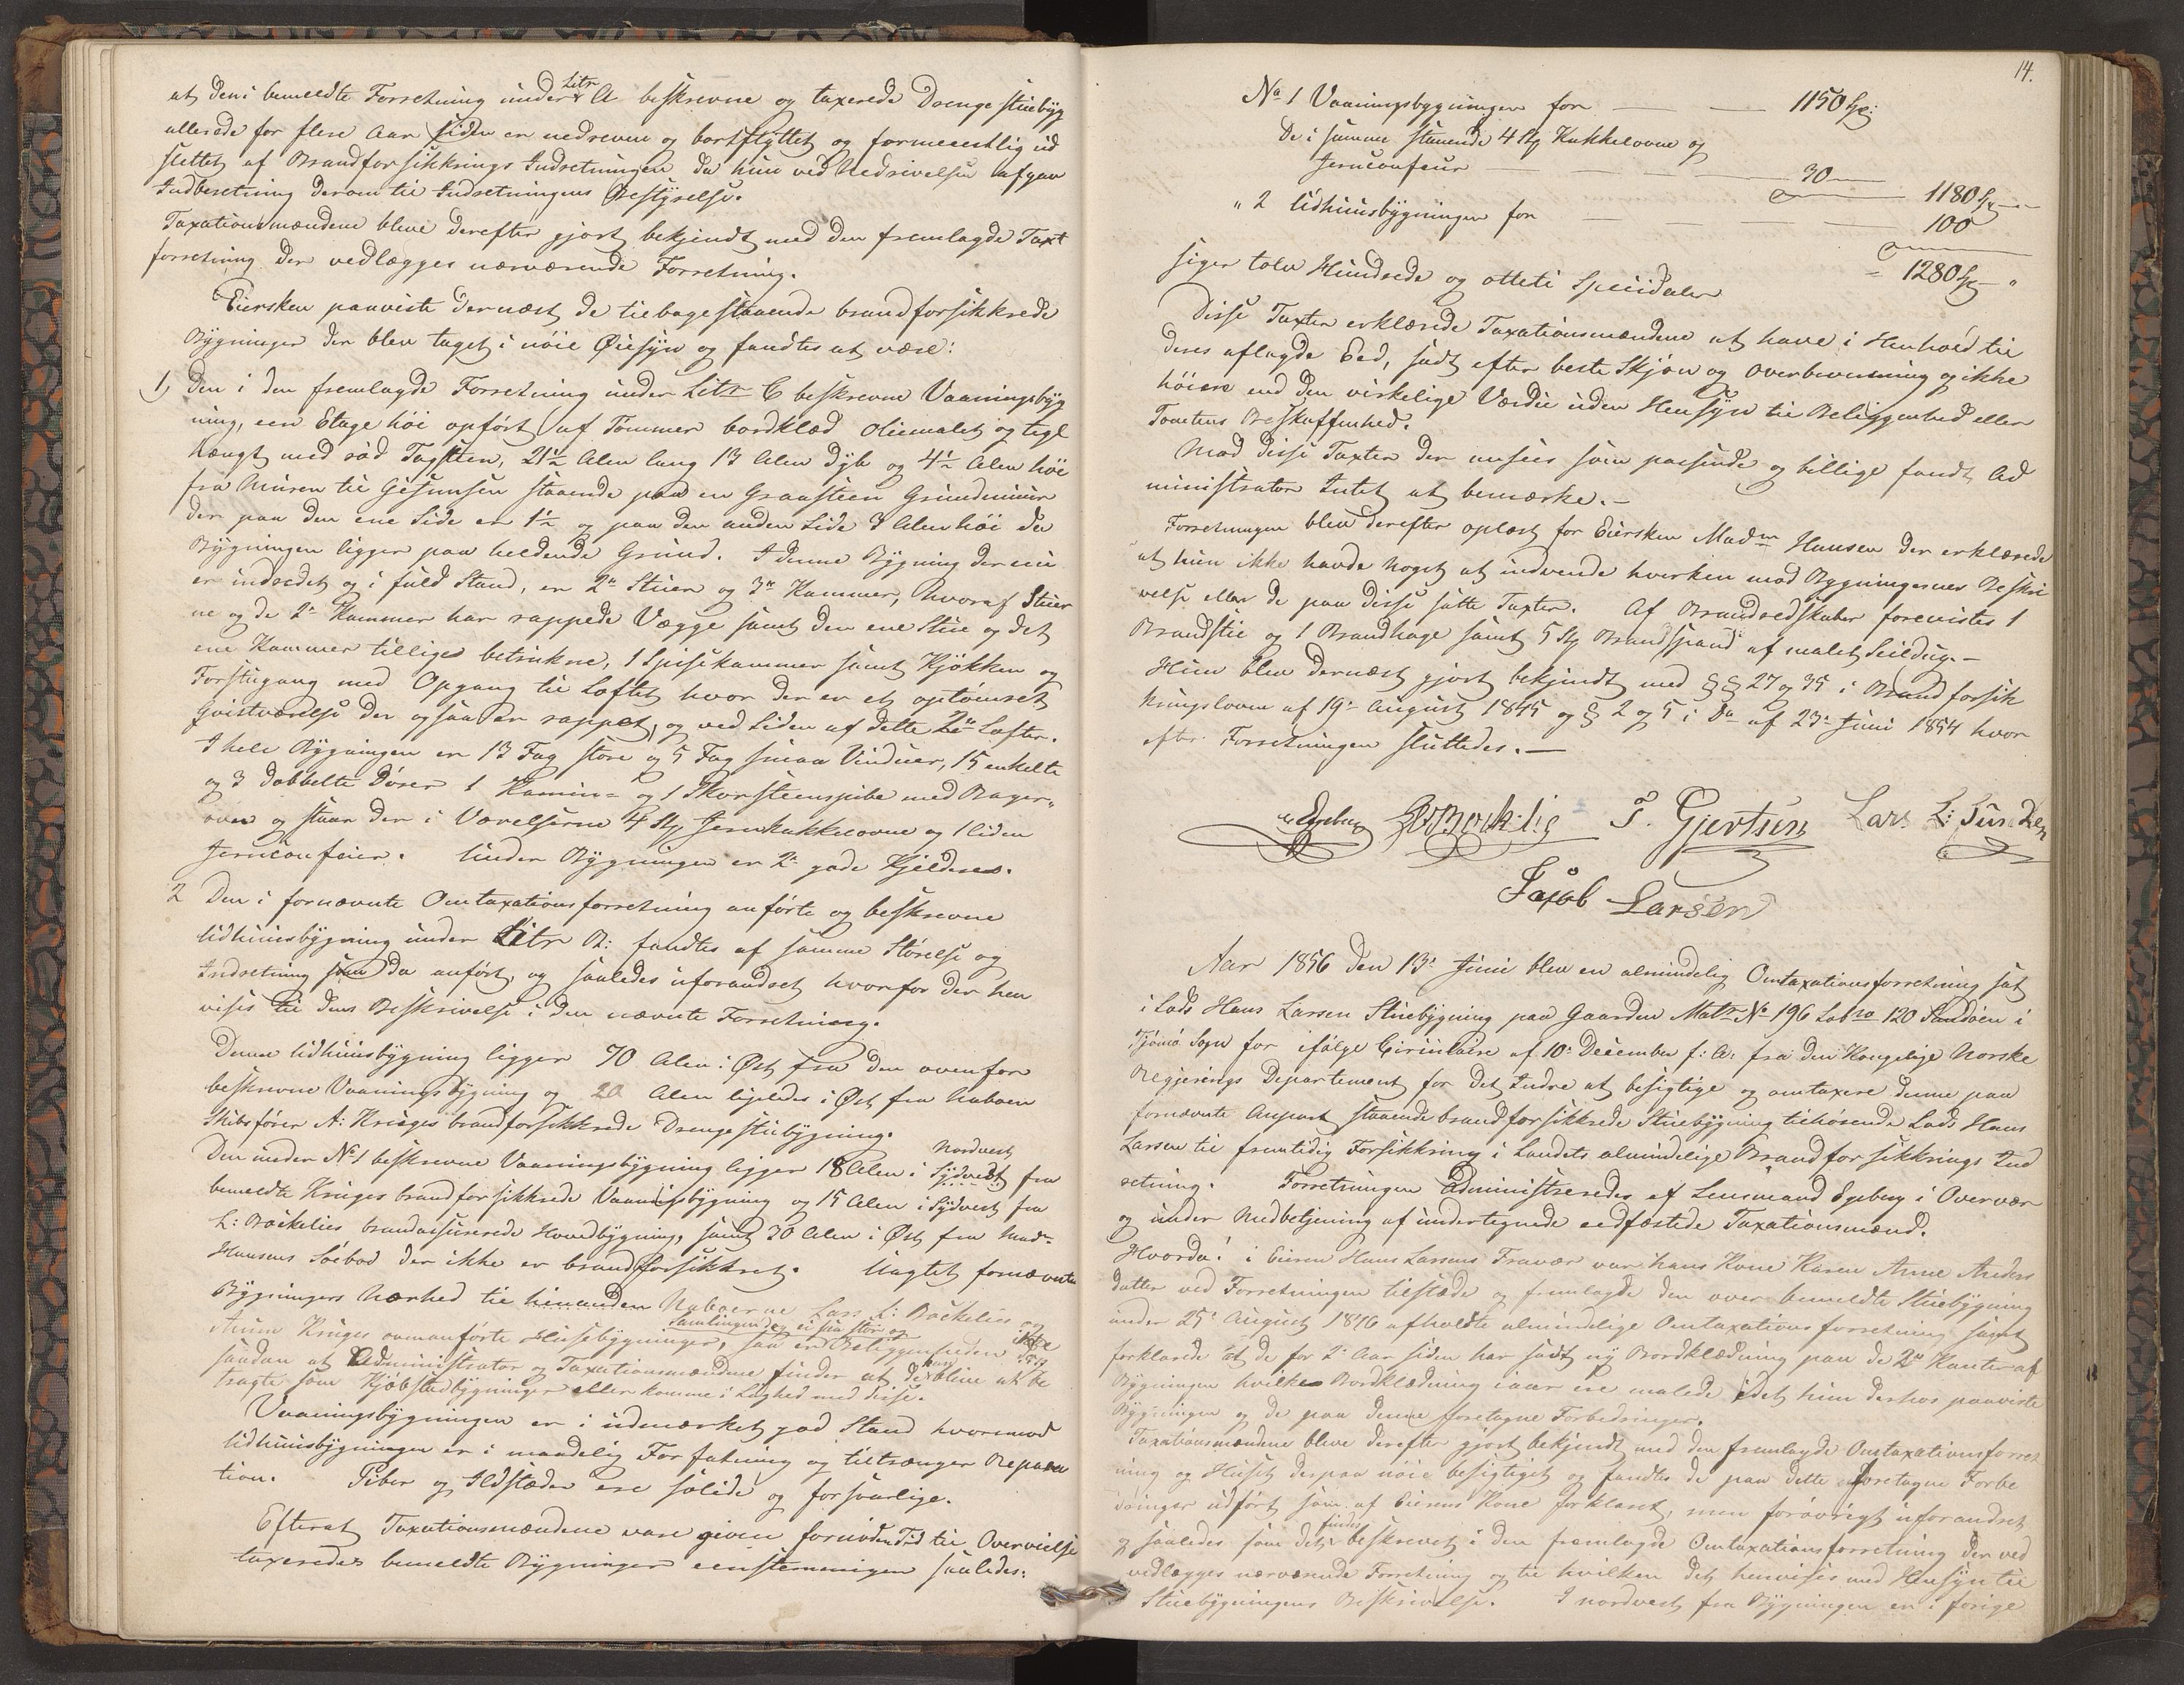 at den i bemeldte Forretning under Litr A beskrevne og taxerede Drengestuebyg
allerede for flere Aar siden er nedreven og bortflyttet og formeentlig ud
slettet af Brandforsikkrings Indretningen da hun ved Nedrivelsen afgav
Indberetning derom til Indretningens Bestyrelse.
Taxationsmændene bleve derefter gjort bekjendt med den fremlagde Taxt
forretning der vedlægges nærværende Forretning.
Eiersken paaviste dernæst de tilbagestaaende brandforsikkrede
Bygninger der blev taget i nöie Öiesyn og fandtes at være:
1, Den i den fremlagde Forretning under Litr C beskrevne Vaaningsbyg
ning, een Etage höi opfört af Tömmer bordklæd oliemalet og tegl
hængt med röd Tagsteen, 21½ Alen lang 13 Alen dyb og 4½ Alen höi
fra Muren til Gesimsen staaende paa en Graasteen Grundmuur
der paa den ene Side er 1½ og paa den anden Side 3 Alen höi da
Bygningen ligger paa heldende Grund. I denne Bygning der nu
er indredet og i fuld Stand, er 2de Stuer og 3de Kammer, hvoraf Stuer
ne og de 2de Kammer har rappede Vægge samt den ene Stue og det
ene Kammer tilliges betrukne, 1 Spisekammer samt Kjökken og
Forstugang med Opgang til Loftet hvor der er et optömret
Qvistværelse der ogsaa er rappet, og ved Siden af dette 2de Lofter.
I hele Bygningen er 13 Fag store og 5 Fag smaa Vinduer, 15 enkelte
og 3 dobbelte Dörer 1 Kamin- og 1 Skorsteenspibe med Bager-
ovn og staar der i Værelserne 4 Stk Jernkakkelovne og 1 liden
Jerncomfeier. Under Bygningen er 2de gode Kjeldere.
2 Den i fornævnte Omtaxationsforretning anförte og beskrevne
Udhuusbygning under Litr B: fandtes af samme Störelse og
Indretning som da anfört, og saaledes uforandret hvorfor der hen
vises til dens Beskrivelse i den nævnte Forretning.
Denne Udhuusbygning ligger 70 Alen i Öst fra den ovenfor
beskrevne Vaaningsbygning og 20 Alen ligeledes i Öst fra Naboen
Skibsförer A: Kriiges brandforsikkrede Drengestuebygning.
Nordvest
Den under No 1 beskrevne Vaaningsbygning ligger 18 Alen i Sydvest fra
bemeldte Kriiges brandforsikkrede Vaaningsbygning og 15 Alen i Sydvest fra
L: Bockelies brandassurerede Hovedbygning, samt 30 Alen i Öst fra Mad-
Hansens Söebod der ikke er brandforsikkret. Uagtet fornævnte
Bygningers Nærhed til hinanden Naboerne Lars L: Bockelies og
Samlingen dog ei saa stor og
Anun Kriiges ovenanförte Husebygninger, saa er Beliggenheden ikke
saadan at Administrator og Taxationsmændene finder at de kan blive at be
tragte som Kjöbstadbygninger eller komme i Lighed med disse.
Vaaningsbygningen er i udmærket god Stand hvorimod
Udhuusbygningen er i maadelig Forfatning og tiltrænger Repara
tion. Piber og Ildstæder ere solide og forsvarlige.
Efterat Taxationsmændene vare given fornöden Tid til Overveielse
taxeredes bemeldte Bygninger eenstemmigen saaledes:
14.
No 1 Vaaningsbygningen for 1150 Sp:
De i samme staaende 4 Stk Kakkelovne og
Jerncomfeur 30 1180 Sp
" 2 Udhuusbygningen for 100
= 1280 Sp "
siger tolv Hundrede og otteti Speciedaler
Disse Taxter erklærede Taxationsmændene at have i Henhold til
deres aflagde Eed, sadt efter beste Skjön og Overbeviisning og ikke
höiere end den virkelige Værdie uden Hensyn til Beliggenhed eller
Tomtens Beskaffenhed.
Mod disse Taxter der ansees som passende og billige fandt Ad
ministrator Intet at bemærke.-
Forretningen blev derefter oplæst for Eiersken Madm Hansen der erklærede
at hun ikke havde noget at indvende hverken mod Bygningernes Beskri
velse eller de paa disse satte Taxter. Af Brandredskaber forevistes 1
Brandstie og 1 Brandhage samt 5 Stk Brandspand af malet Seildug.-
Hun blev dernæst gjort bekjendt med §§ 27 og 35 i Brandforsik
kringsloven af 19de August 1845 og § 2 og 5 i Do af 23de Juni 1854 hvor
efter Forretningen sluttedes.-
Egeberg T. Gjertsen Lars L:
Jakob Larsen
Aar 1856 den 13de Juni blev en almindelig Omtaxationsforretning sat
i Lods Hans Larsen Stuebygning paa Gaarden Matr No 196 Lobno 120 Sandöen i
Tjömö Sogn for ifölge Circulaire af 10de December f: A: fra den Kongelige Norske
Regjerings Departement for det Indre at besigtige og omtaxere denne paa
fornævnte Anpart staaende brandforsikkrede Stuebygning tilhörende Lods Hans
Larsen til fremtidig Forsikkring i Landets almindelige Brandforsikkrings Ind
retning. Forretningen administreredes af Lensmand Egeberg i Overvær
og under Medbetjening af undertegnede eedfæstede Taxationsmænd.
Hvorda! i Eieren Hans Larsens Fravær var hans Kone Karen Anne Anders
datter ved Forretningen tilstæde og fremlagde den over bemeldte Stuebygning
under 25de August 1846 afholdte almindelige Omtaxationsforretning samt
forklarede at de for 2de Aar siden har sadt ny Bordklædning paa de 2de Kanter af
Bygningen hvilken Bordklædning i aar ere malede idet hun derhos paaviste
Bygningen og de paa denne foretagne Forbedringer.
Taxationsmændene bleve derefter gjort bekjendt med den fremlagde Omtaxationsforret
ning og Huset derpaa nöie besigtiget og fandtes de paa dette foretagne Forbe
dringer udfört som af Eierens Kone forklaret, men forövrigt uforandret
findes
og saaledes som det beskrevet i den fremlagde Omtaxationsforretning der ved
vedlægges nærværende Forretning og til hvilken det henvises med Hensyn til
Stuebygningens Beskrivelse. I nordvest fra Bygningen er i forige